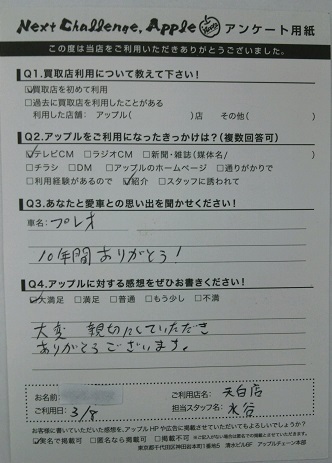 Next Challenge, Apple アンケート用紙
この度は当店をご利用いただきありがとうございました。
Q1.買取店利用について教えて下さい!
☑買取店を初めて利用
□過去に買取店を利用したことがある
利用した店舗:アップル( )店 その他( )
Q2.アップルをご利用になったきっかけは?(複数回答可)
☑テレビCM □ラジオCM □新聞・雑誌(媒体名/ )
□チラシ □DM □アップルのホームページ □通りがかりで
□利用経験があるので ☑紹介 □スタッフに誘われて
Q3.あなたと愛車との思い出を聞かせください!
車名:プレオ
10年間ありがとう!
Q4.アップルに対する感想をぜひお書きください!
☑大満足 □満足 □普通 □もう少し □不満
大変 親切にしていただき
ありがとうございます。
お名前
ご利用日:3/8
ご利用店名:天白店
担当スタッフ名:水谷
お客様に書いていただいた感想を、アップルHPや広告に掲載させていただいてもよろしいでしょうか?
☑実名で掲載可 □匿名で掲載可 □掲載不可 ※ご記入がない場合は匿名での掲載とさせていただきます。
東京都千代田区神田佐久間町1番地5 清水ビル6F アップルチェーン本部